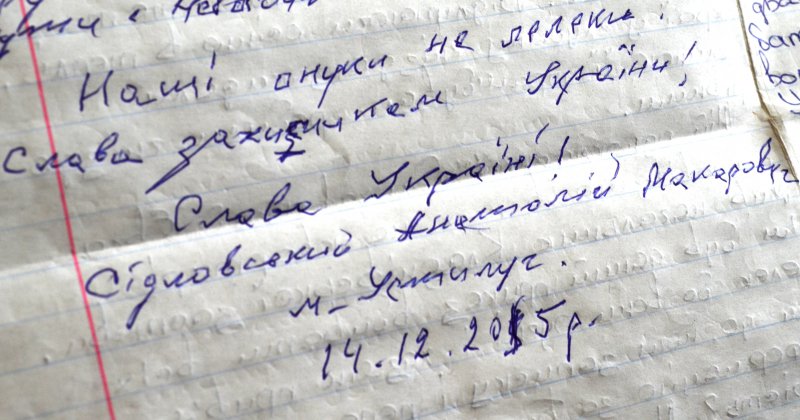 Наші онуки не лелеки!
Слава захисникам України!
Слава Україні!
Сідловський Анатолій Макарович
м-Устилуг.
14.12.2015р.